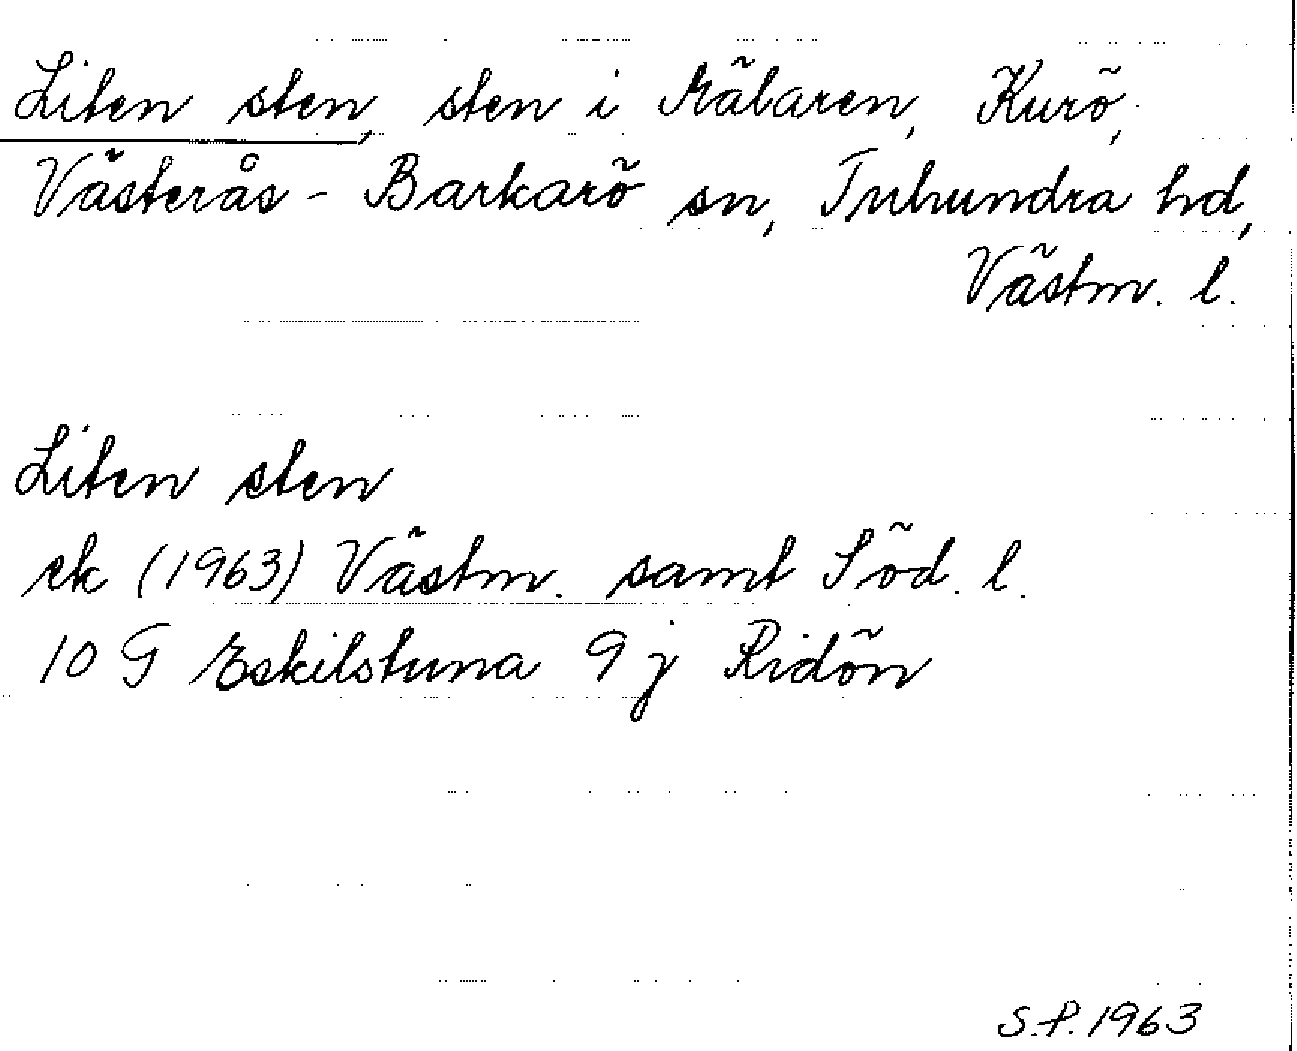 Liten sten, sten i Mälaren, Kurö,
Västerås - Barkarö sn, Tuhundra hd,
Västm. l.
Liten sten
ek (1963) Västm. samt Söd. l.
10 G Eskilstuna 9 j Ridön
S.P. 1963